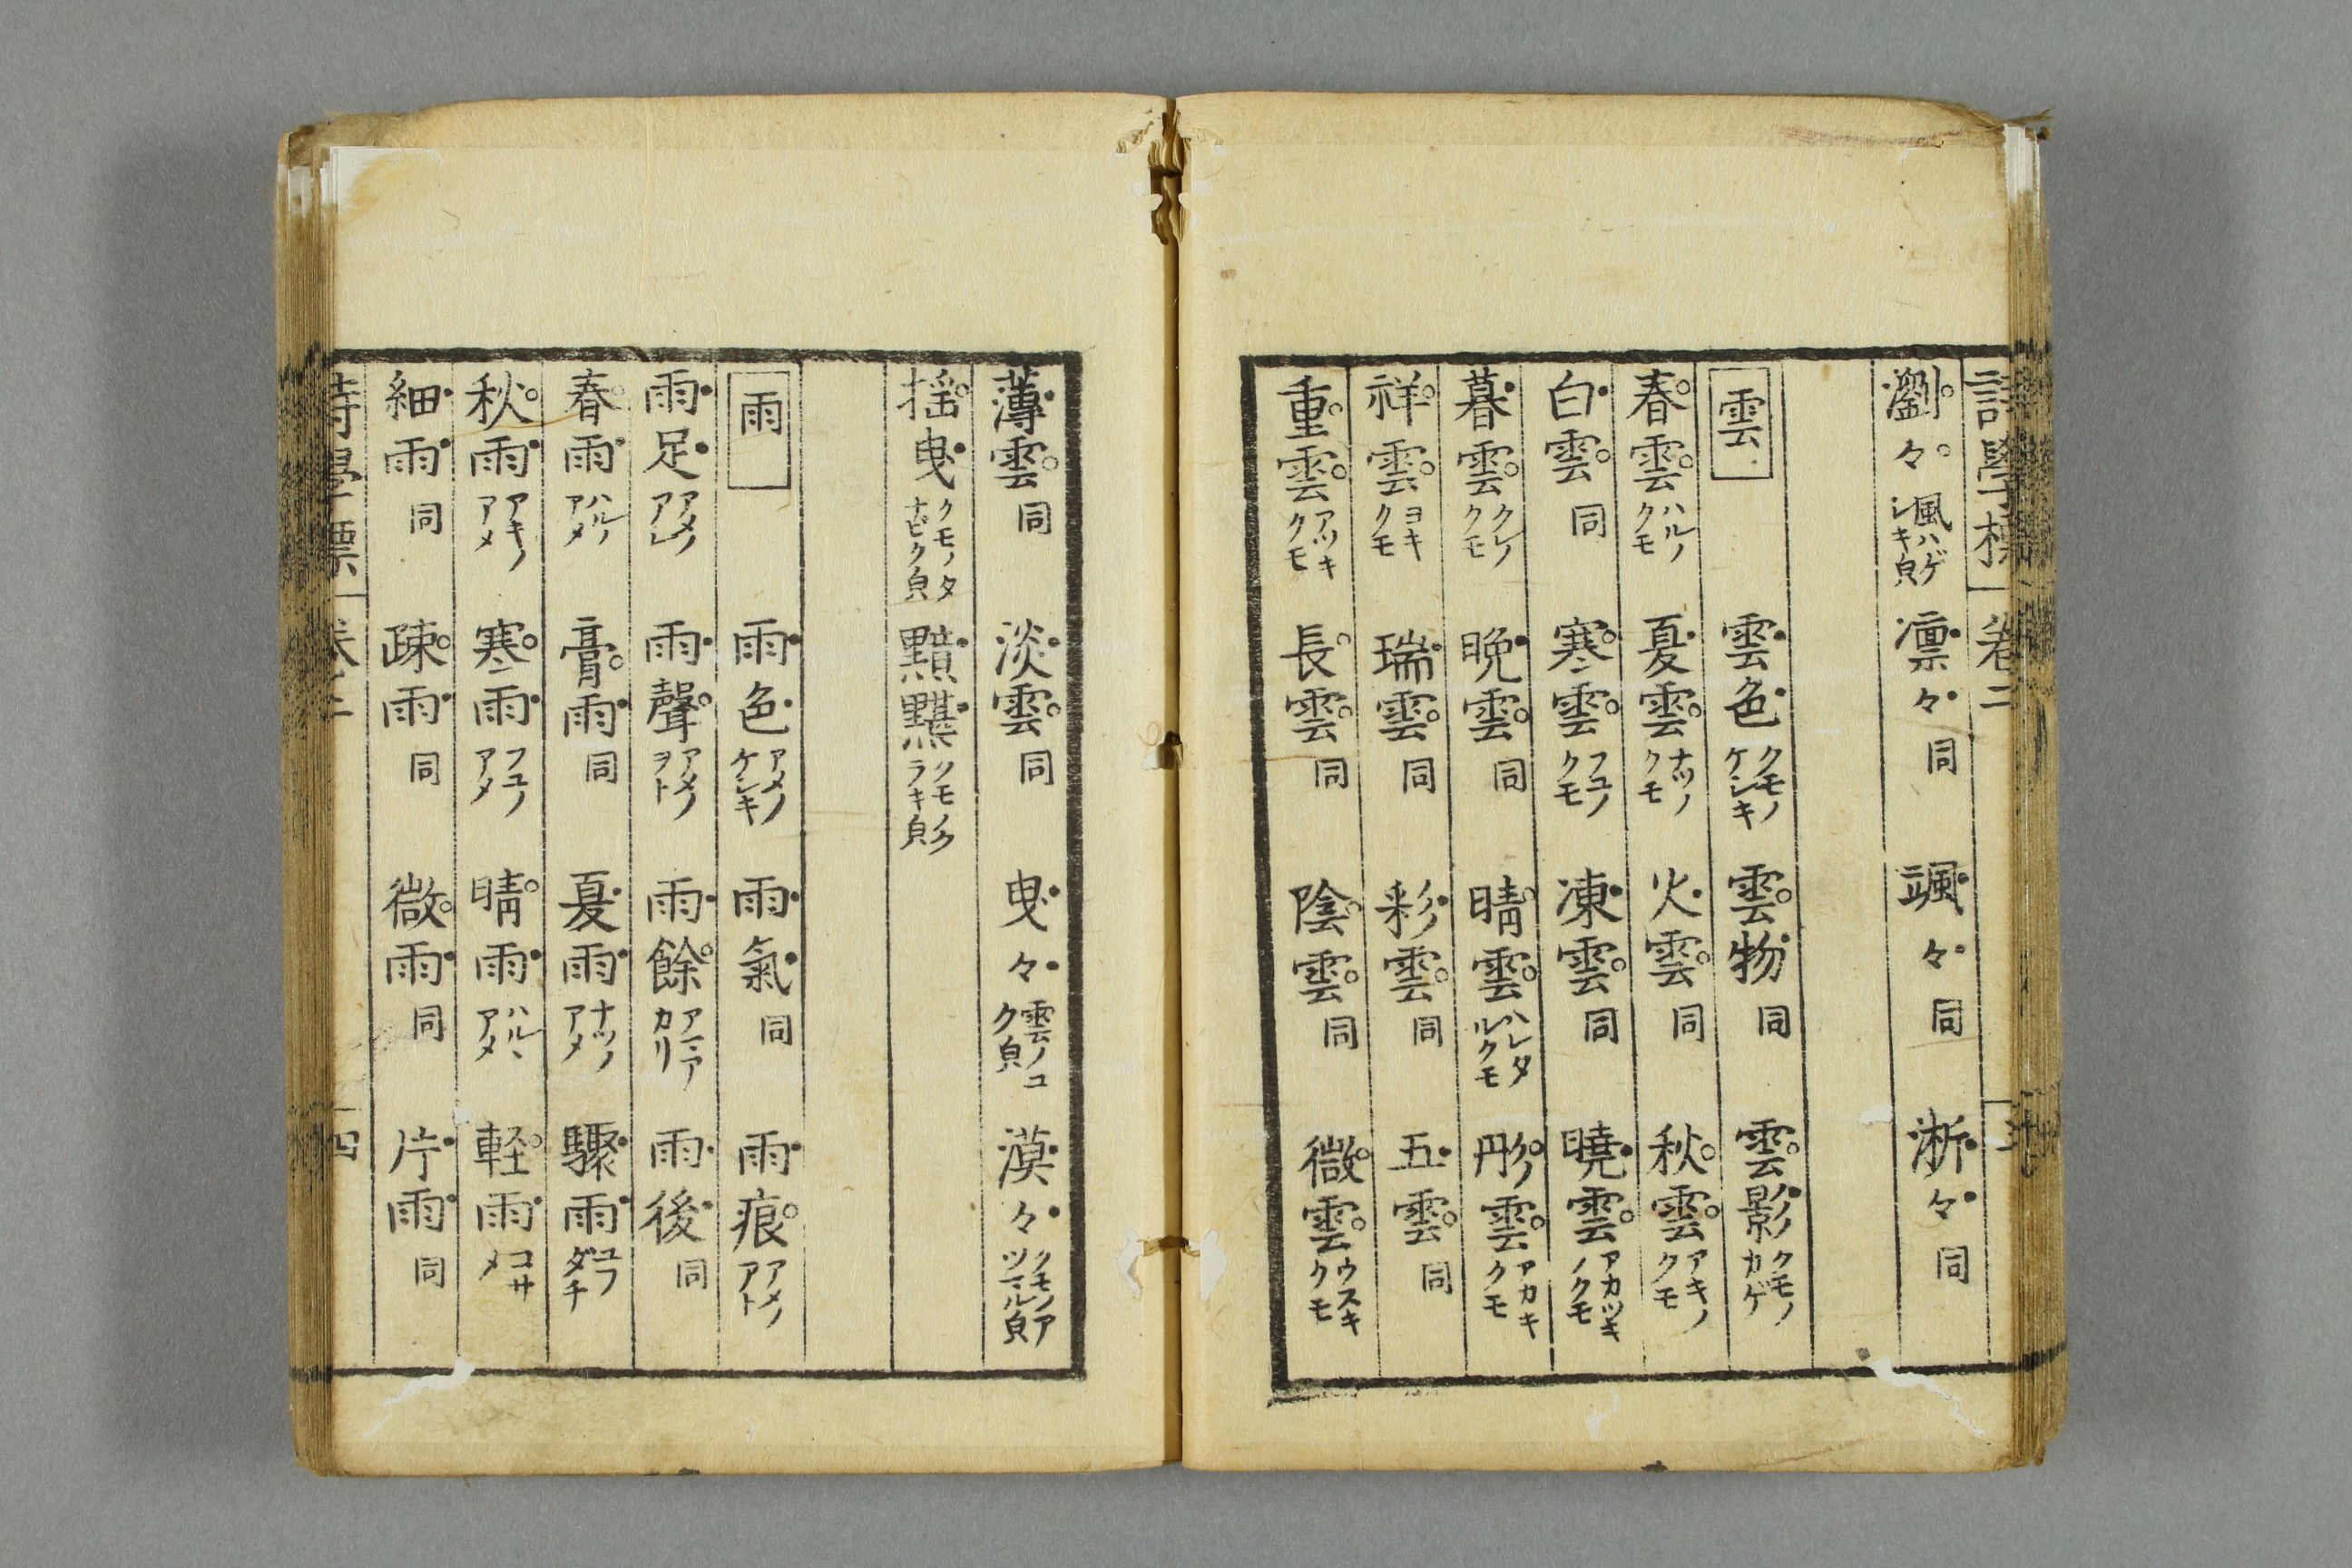 詩學標 卷二
瀏々 風ハゲシキ皃 凛々 同 颯々 同 淅々 同
雲 雲色 クモノケシキ 雲物 同 雲影 クモノカゲ
春雲 ハルノクモ 夏雲 ナツノクモ 火雲 同 秋雲 アキノクモ
白雲 同 寒雲 フユノクモ 凍雲 同 曉雲 アカツキノクモ
暮雲 クレノクモ 晩雲 同 晴雲 ハレタルクモ 彤雲 アカキクモ
祥雲 ヨキクモ 瑞雲 同 彩雲 同 五雲 同
重雲 アツキクモ 長雲 同 陰雲 同 微雲 ウスキクモ
薄雲 同 淡雲 同 曳々 雲ノコク皃 漠々 クモノアツマル皃
揺曳 クモノタナビク皃 黯黮 クモノクラキ皃
雨 雨色 アメノケシキ 雨氣 同 雨痕 アメノアト
雨足 アメノアシ 雨聲 アメノヲト 雨餘 アマアカリ 雨後 同
春雨 ハルノアメ 膏雨 同 夏雨 ナツノアメ 驟雨 ユフダチ
秋雨 アキノアメ 寒雨 フユノアメ 晴雨 ハルヽアメ 軽雨 コサメ
細雨 同 疎雨 同 微雨 同 片雨 同
詩學標 卷二 四